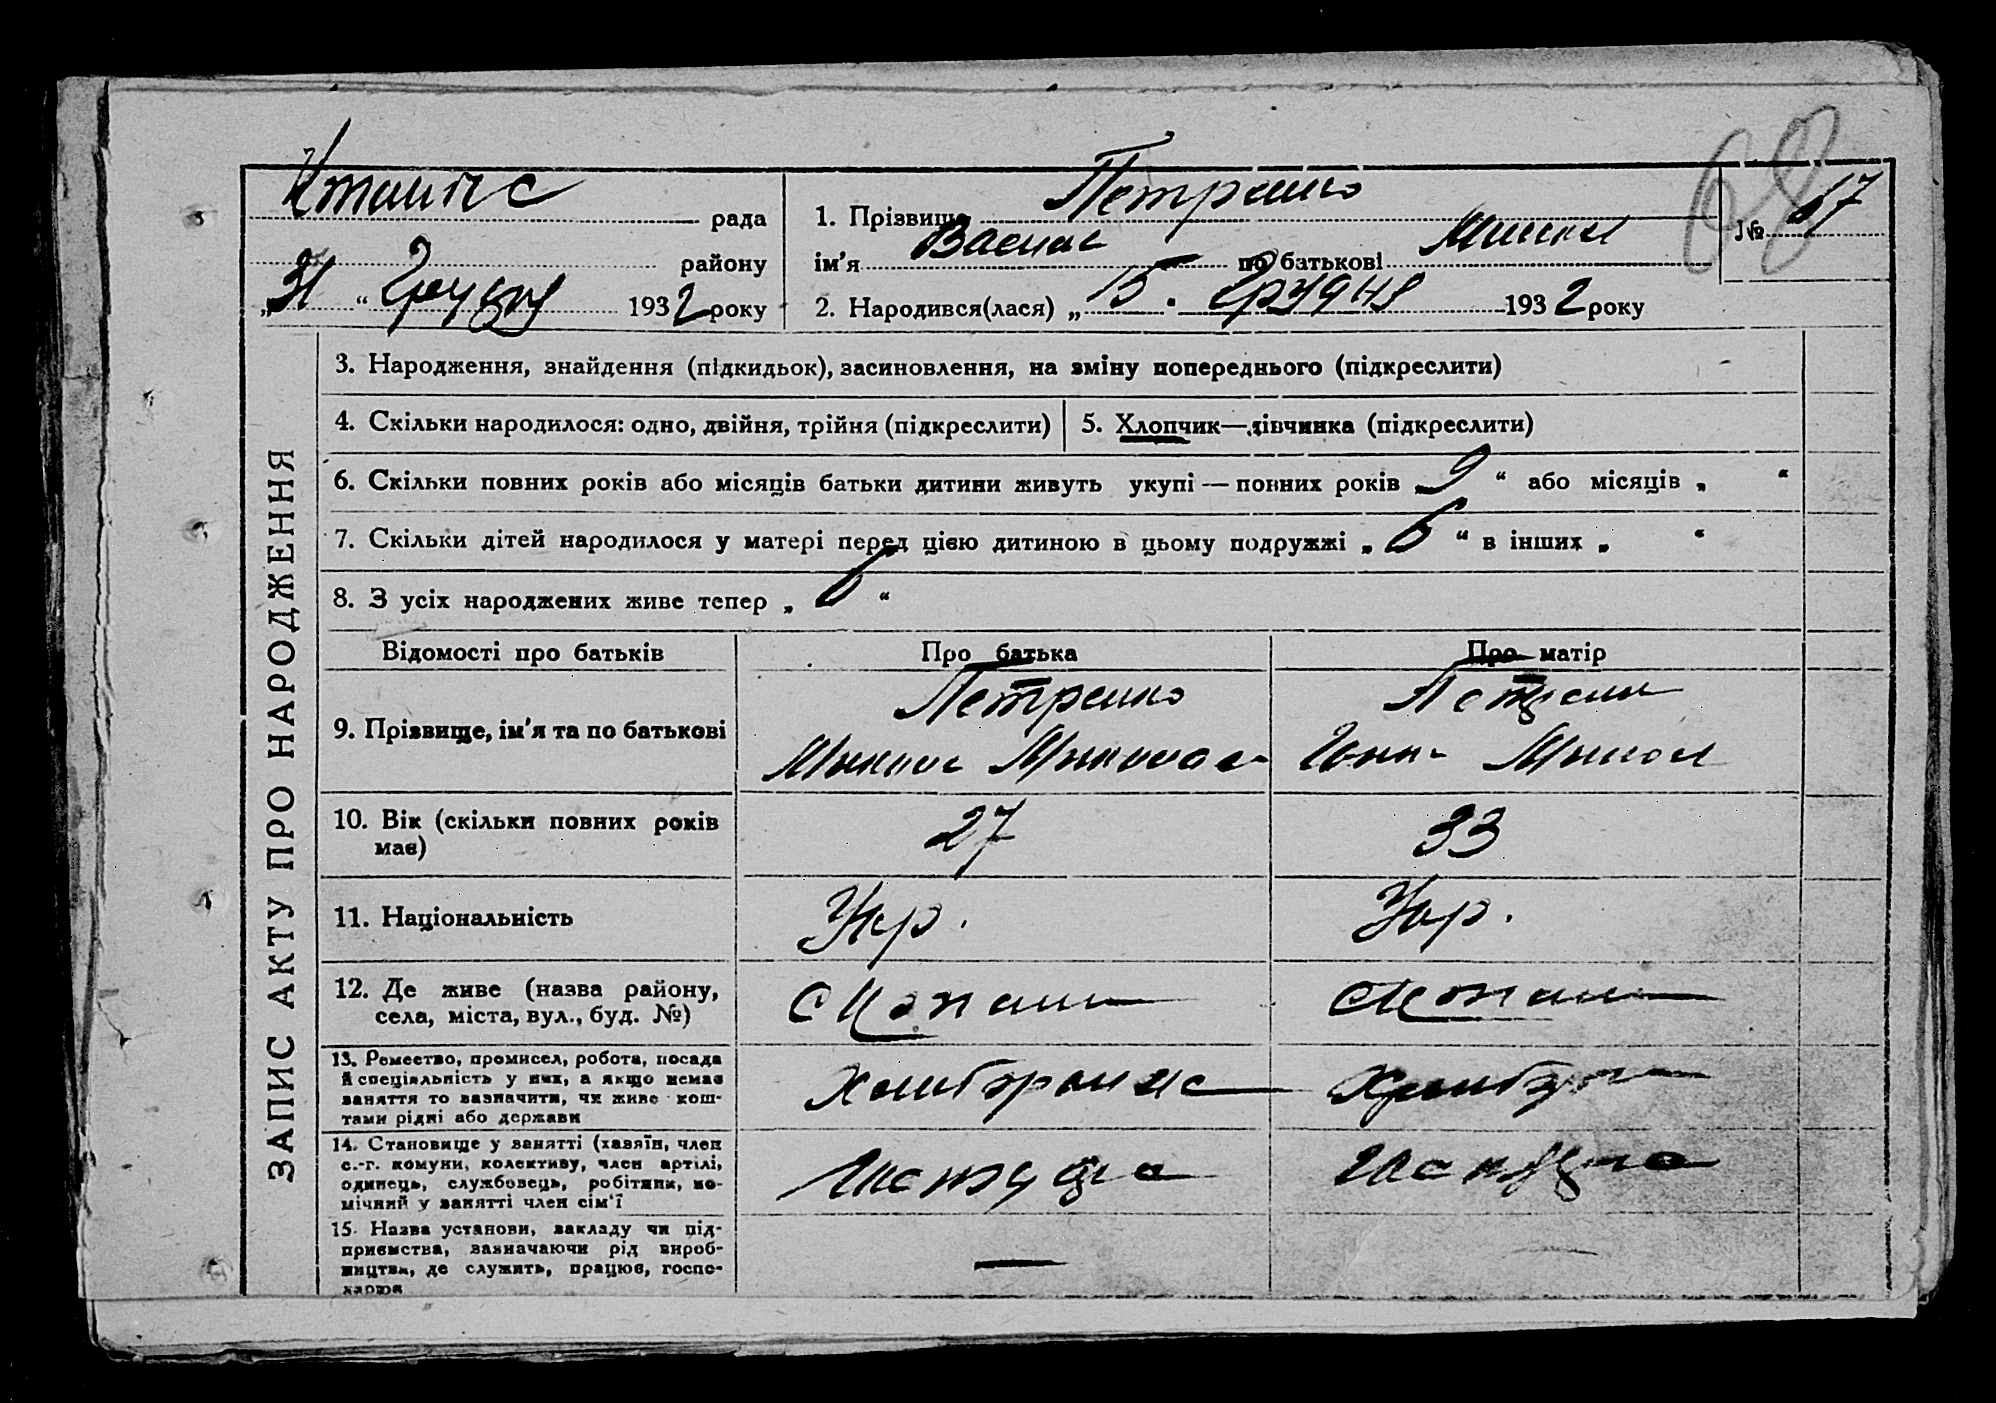 68
рада
1. Прізвище Петренко
№ 67
району
ім'я Василь по батькові Микол
„31“ Грудня 1932 року
2. Народився(лася) „15. Грудня 1932 року
ЗАПИС АКТУ ПРО НАРОДЖЕННЯ
3. Народження, знайдення (підкидьок), засиновлення, на зміну попереднього (підкреслити)
4. Скільки народилося: одно, двійня, трійня (підкреслити)
5. Хлопчик—дівчинка (підкреслити)
6. Скільки повних років або місяців батьки дитини живуть укупі — повних років 9 “ або місяців „ “
7. Скільки дітей народилося у матері перед цією дитиною в цьому подружжі „ 6 “ в інших „ “
8. З усіх народжених живе тепер „ 6 “
Відомості про батьків
Про батька
Про матір
9. Прізвище, ім'я та по батькові
Петренко
Микола Микола
Петренк
Микол
10. Вік (скільки повних років
має)
27
33
11. Національність
Укр.
Укр.
12. Де живе (назва району,
села, міста, вул., буд. №)
13. Ремество, промисел, робота, посада
й спеціяльність у них, а якщо немає
заняття то зазначити, чи живе кош-
тами рідні або держави
14. Становище у занятті (хазяїн, член
с.-г. комуни, колективу, член артілі,
одинець, службовець, робітник, по-
мічний у занятті член сім'ї
15. Назва установи, закладу чи під-
приємства, зазначаючи рід вироб-
ництва, де служить, працює, госпо-
дарює
—